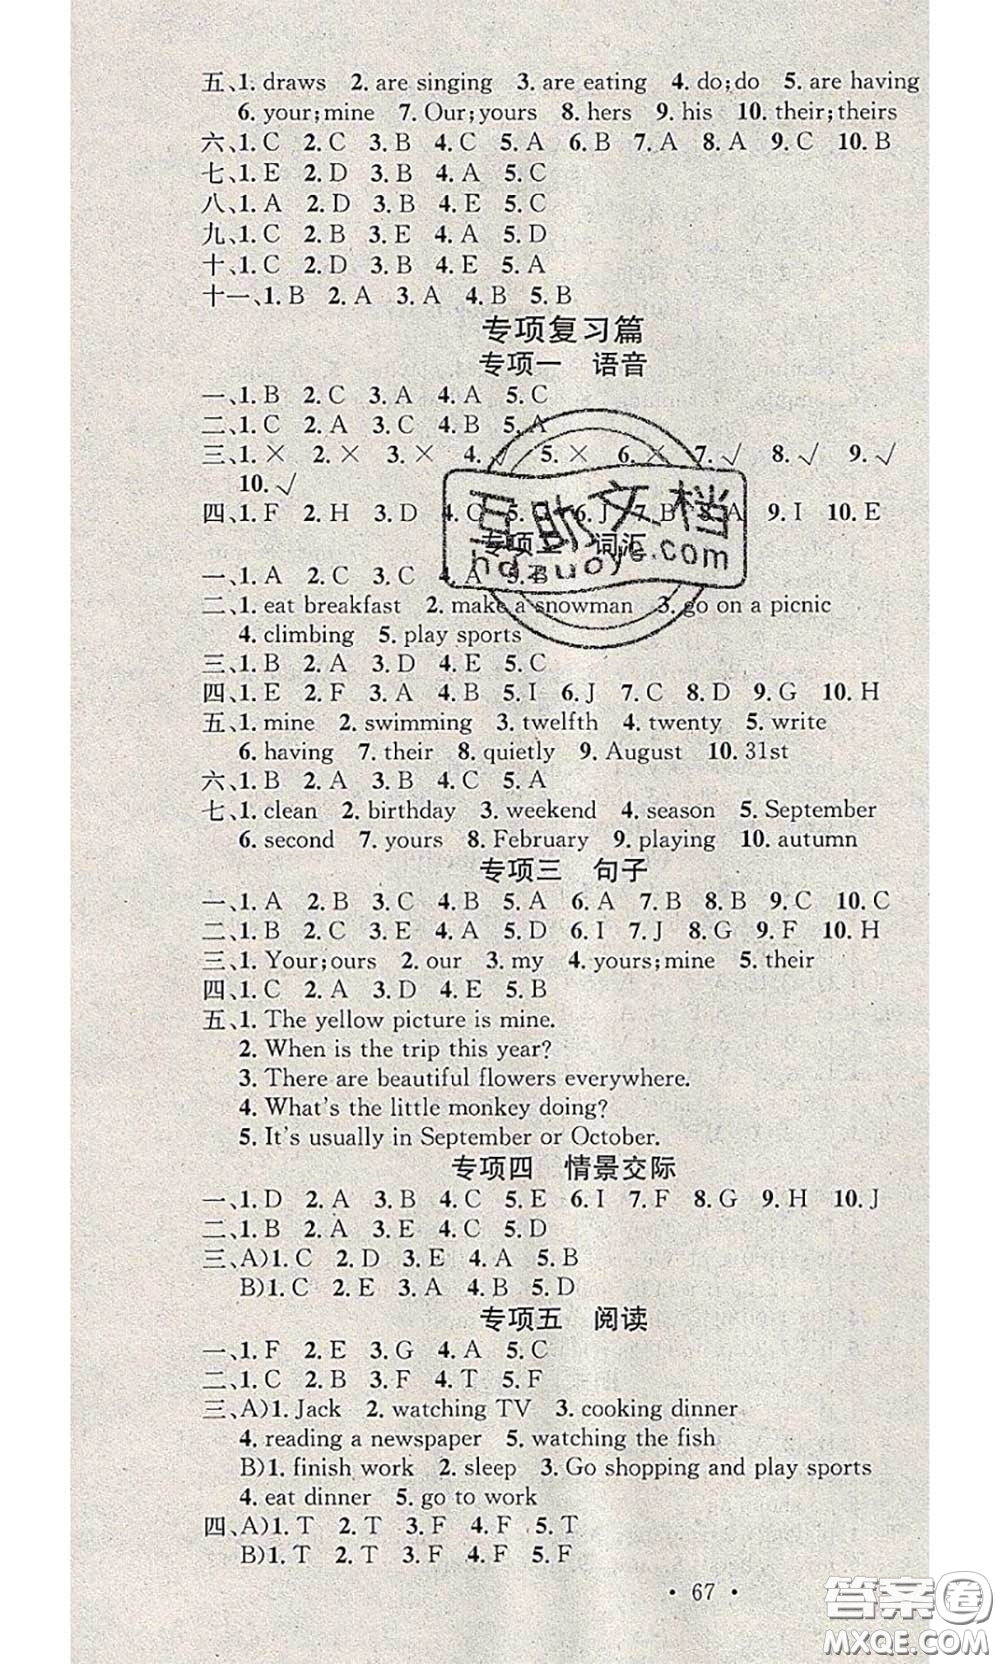 五、1. draws 2. are singing 3. are eating 4. do;do 5. are having
6. your;mine 7. Our;yours 8. hers 9. his 10. their;theirs
六、1. C 2. C 3. B 4. C 5. A 6. B 7. A 8. A 9. C 10. B
七、1. E 2. D 3. B 4. A 5. C
八、1. A 2. D 3. B 4. E 5. C
九、1. C 2. B 3. E 4. A 5. D
十、1. C 2. D 3. B 4. E 5. A
十一、1. B 2. A 3. A 4. B 5. B
专项复习篇
专项一 语音
一、1. B 2. C 3. A 4. A 5. C
二、1. C 2. A 3. C 4. B 5. A
三、1. × 2. × 3. × 4. √ 5. × 6. × 7. √ 8. √ 9. √
10. √
四、1. F 2. H 3. D 4. C 5. 6. J 7. B 8. A 9. I 10. E
专项二 词汇
一、1. A 2. C 3. C 4. A 5. B
二、1. eat breakfast 2. make a snowman 3. go on a picnic
4. climbing 5. play sports
三、1. B 2. A 3. D 4. E 5. C
四、1. E 2. F 3. A 4. B 5. I 6. J 7. C 8. D 9. G 10. H
五、1. mine 2. swimming 3. twelfth 4. twenty 5. write
6. having 7. their 8. quietly 9. August 10. 31st
六、1. B 2. A 3. B 4. C 5. A
七、1. clean 2. birthday 3. weekend 4. season 5. September
6. second 7. yours 8. February 9. playing 10. autumn
专项三 句子
一、1. A 2. B 3. C 4. B 5. A 6. A 7. B 8. B 9. C 10. C
二、1. B 2. C 3. E 4. A 5. D 6. I 7. J 8. G 9. F 10. H
三、1. Your;ours 2. our 3. my 4. yours;mine 5. their
四、1. C 2. A 3. D 4. E 5. B
五、1. The yellow picture is mine.
2. When is the trip this year?
3. There are beautiful flowers everywhere.
4. What's the little monkey doing?
5. It's usually in September or October.
专项四 情景交际
一、1. D 2. A 3. B 4. C 5. E 6. I 7. F 8. G 9. H 10. J
二、1. B 2. A 3. E 4. C 5. D
三、A)1. C 2. D 3. E 4. A 5. B
B)1. C 2. E 3. A 4. B 5. D
专项五 阅读
一、1. F 2. E 3. G 4. A 5. C
二、1. C 2. B 3. F 4. T 5. F
三、A)1. Jack 2. watching TV 3. cooking dinner
4. reading a newspaper 5. watching the fish
B)1. finish work 2. sleep 3. Go shopping and play sports
4. eat dinner 5. go to work
四、A)1. T 2. T 3. F 4. F 5. T
B)1. T 2. T 3. F 4. F 5. F
· 67 ·
答案圈
MXQE.COM